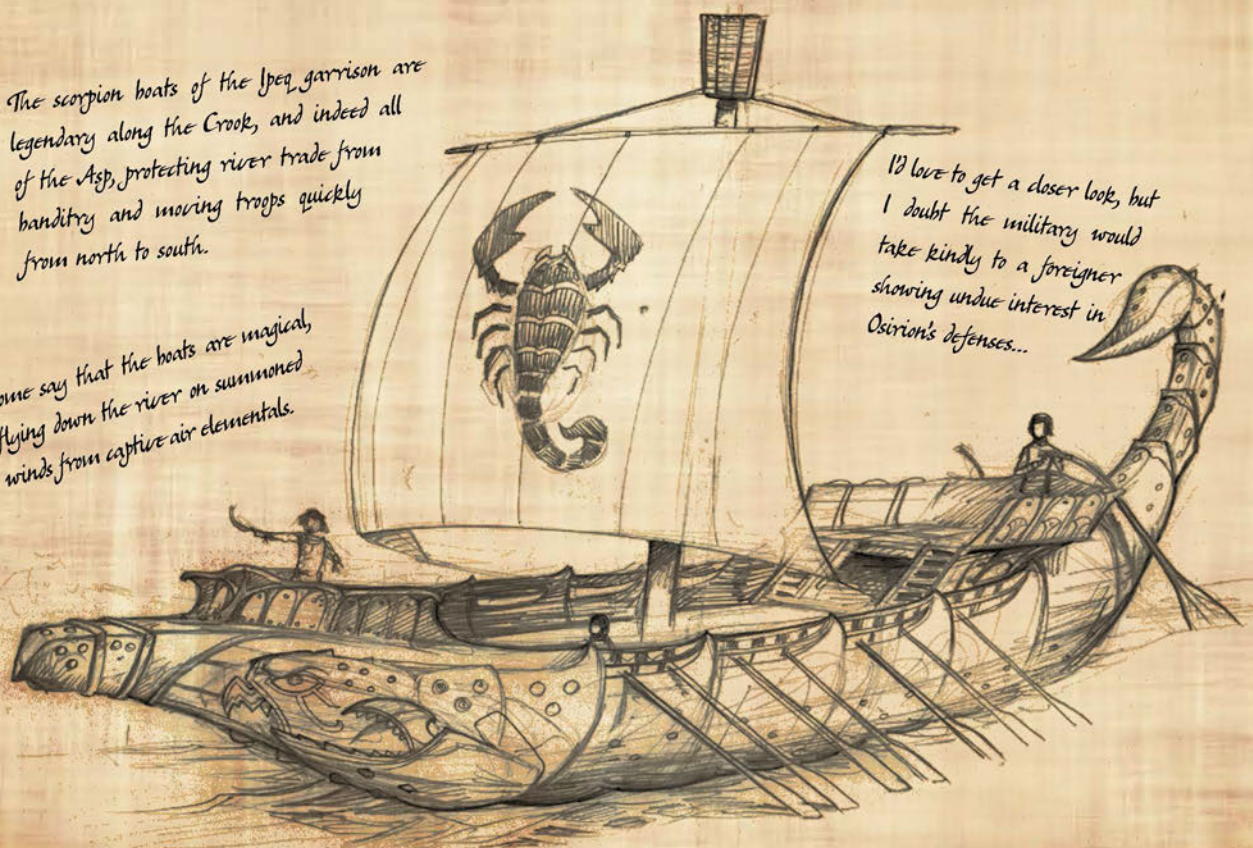 The scorpion boats of the Ipeq garrison are
legendary along the Crook, and indeed all
of the Asp, protecting river trade from
banditry and moving troops quickly
from north to south.
ome say that the boats are magical,
flying down the river on summoned
winds from captive air elementals.
I'd love to get a closer look, but
I doubt the military would
take kindly to a foreigner
showing undue interest in
Osirion's defenses...